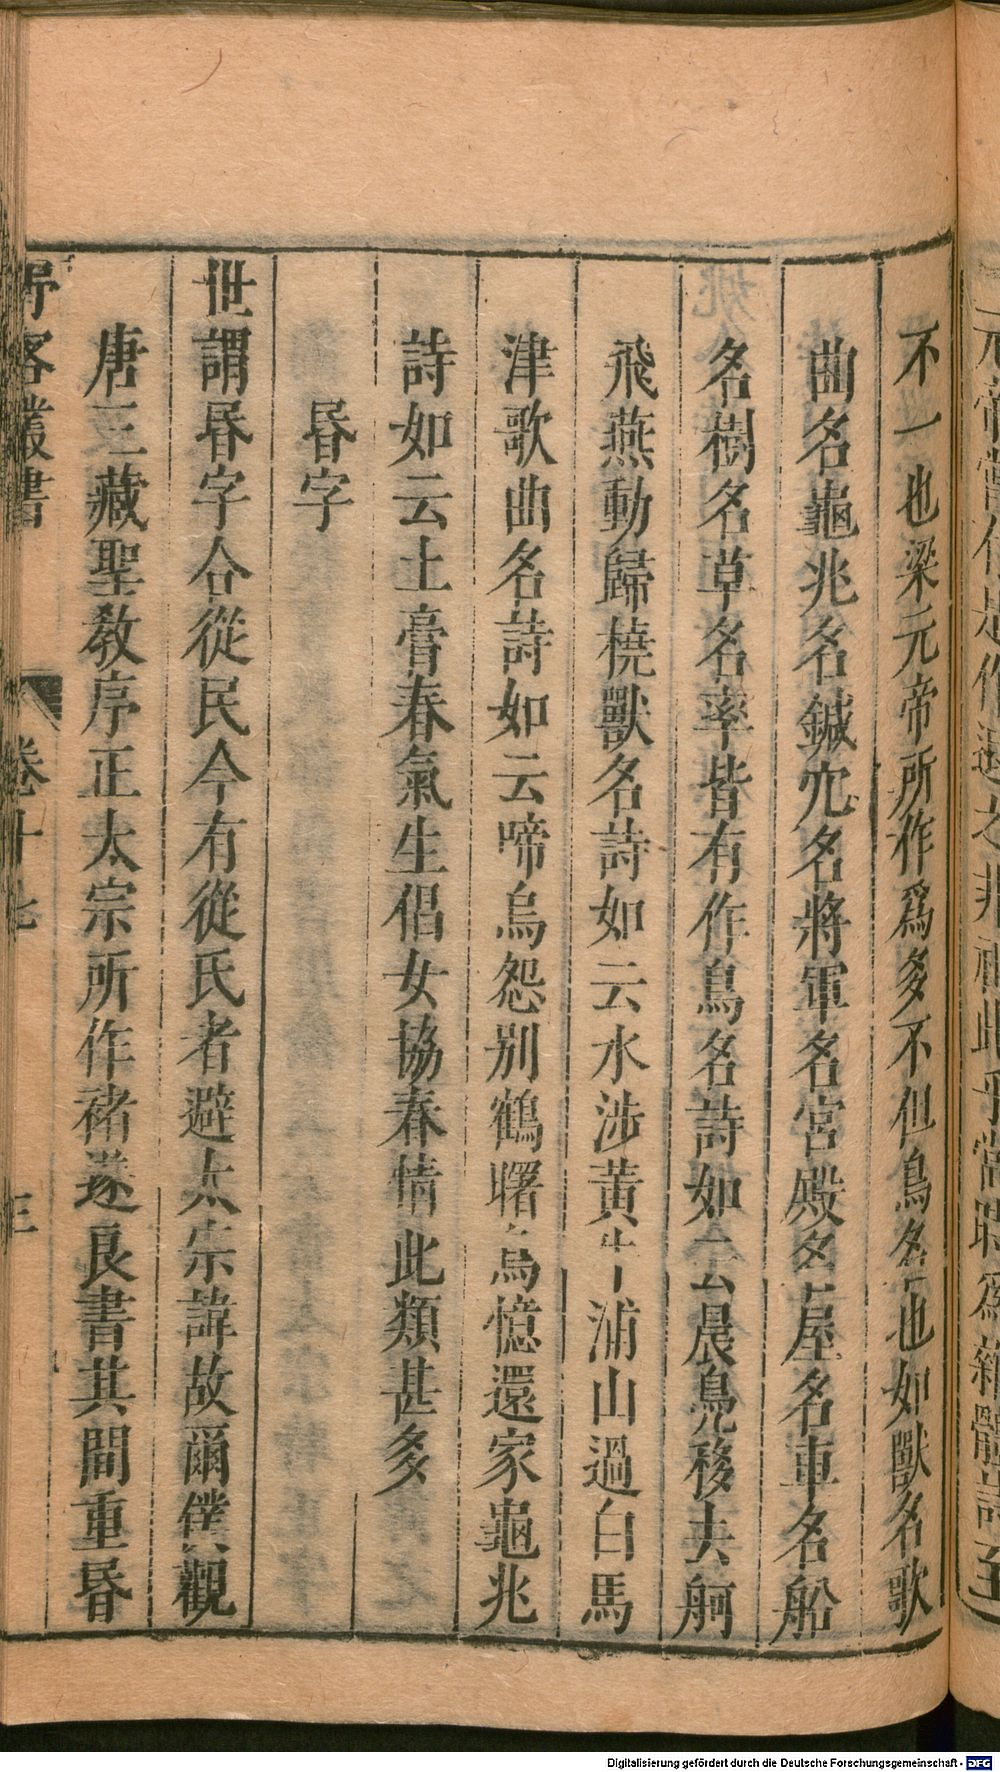 不一也梁元帝所作爲多不但鳥名也如獸名歌
曲名龜兆名鍼穴名將軍名宮殿名屋名車名船
名樹名草名率皆有作鳥名詩如云晨鳧移去舸
飛燕動歸橈獸名詩如云水涉黃牛浦山過白馬
津歌曲名詩如云啼烏怨别鶴曙烏憶還家龜兆
詩如云土膏春氣生倡女協春情此類甚多
昬字
世謂昬字合從民今有從氏者避太宗諱故爾僕觀
唐三藏聖教序正太宗所作褚遂良書其間重昬
野客叢書
卷十七
三
Digitalisierung gefördert durch die Deutsche Forschungsgemeinschaft - DFG